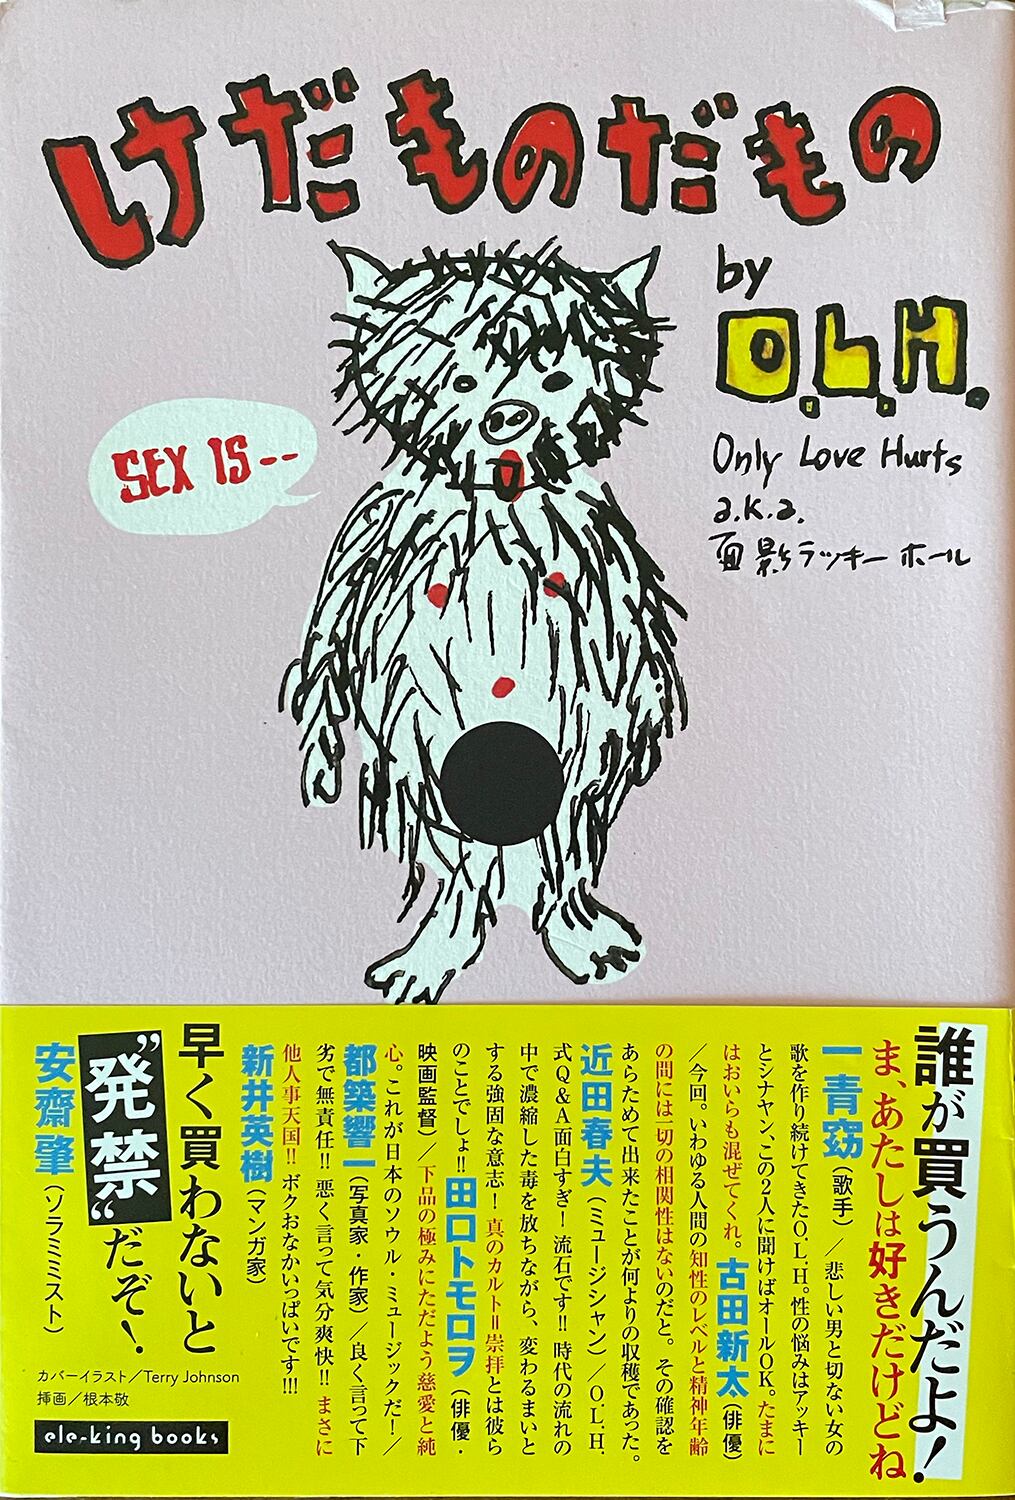 けだものだもの
by
O.L.H.
Only Love Hurts
a.k.a.
面影ラッキーホール
SEX IS--
誰が買うんだよ!
ま、あたしは好きだけどね
一青窈(歌手)／悲しい男と切ない女の
歌を作り続けてきたO.L.H。性の悩みはアッキー
とシナヤン、この2人に聞けばオールOK。たまに
はおいらも混ぜてくれ。古田新太(俳優)
／今回。いわゆる人間の知性のレベルと精神年齢
の間には一切の相関性はないのだと。その確認を
あらためて出来たことが何よりの収穫であった。
近田春夫(ミュージシャン)／O.L.H.
式Q&A面白すぎ!流石です!!時代の流れの
中で濃縮した毒を放ちながら、変わるまいと
する強固な意志!真のカルト=崇拝とは彼ら
のことでしょ!!田口トモロヲ(俳優・
映画監督)／下品の極みにただよう慈愛と純
心。これが日本のソウル・ミュージックだ!／
都築響一(写真家・作家)／良く言って下
劣で無責任!!悪く言って気分爽快!!まさに
他人事天国!!ボクおなかいっぱいです!!!
新井英樹(マンガ家)
早く買わないと
”発禁“だぞ!
安齋肇(ソラミミスト)
カバーイラスト／Terry Johnson
挿画／根本敬
ele-king books